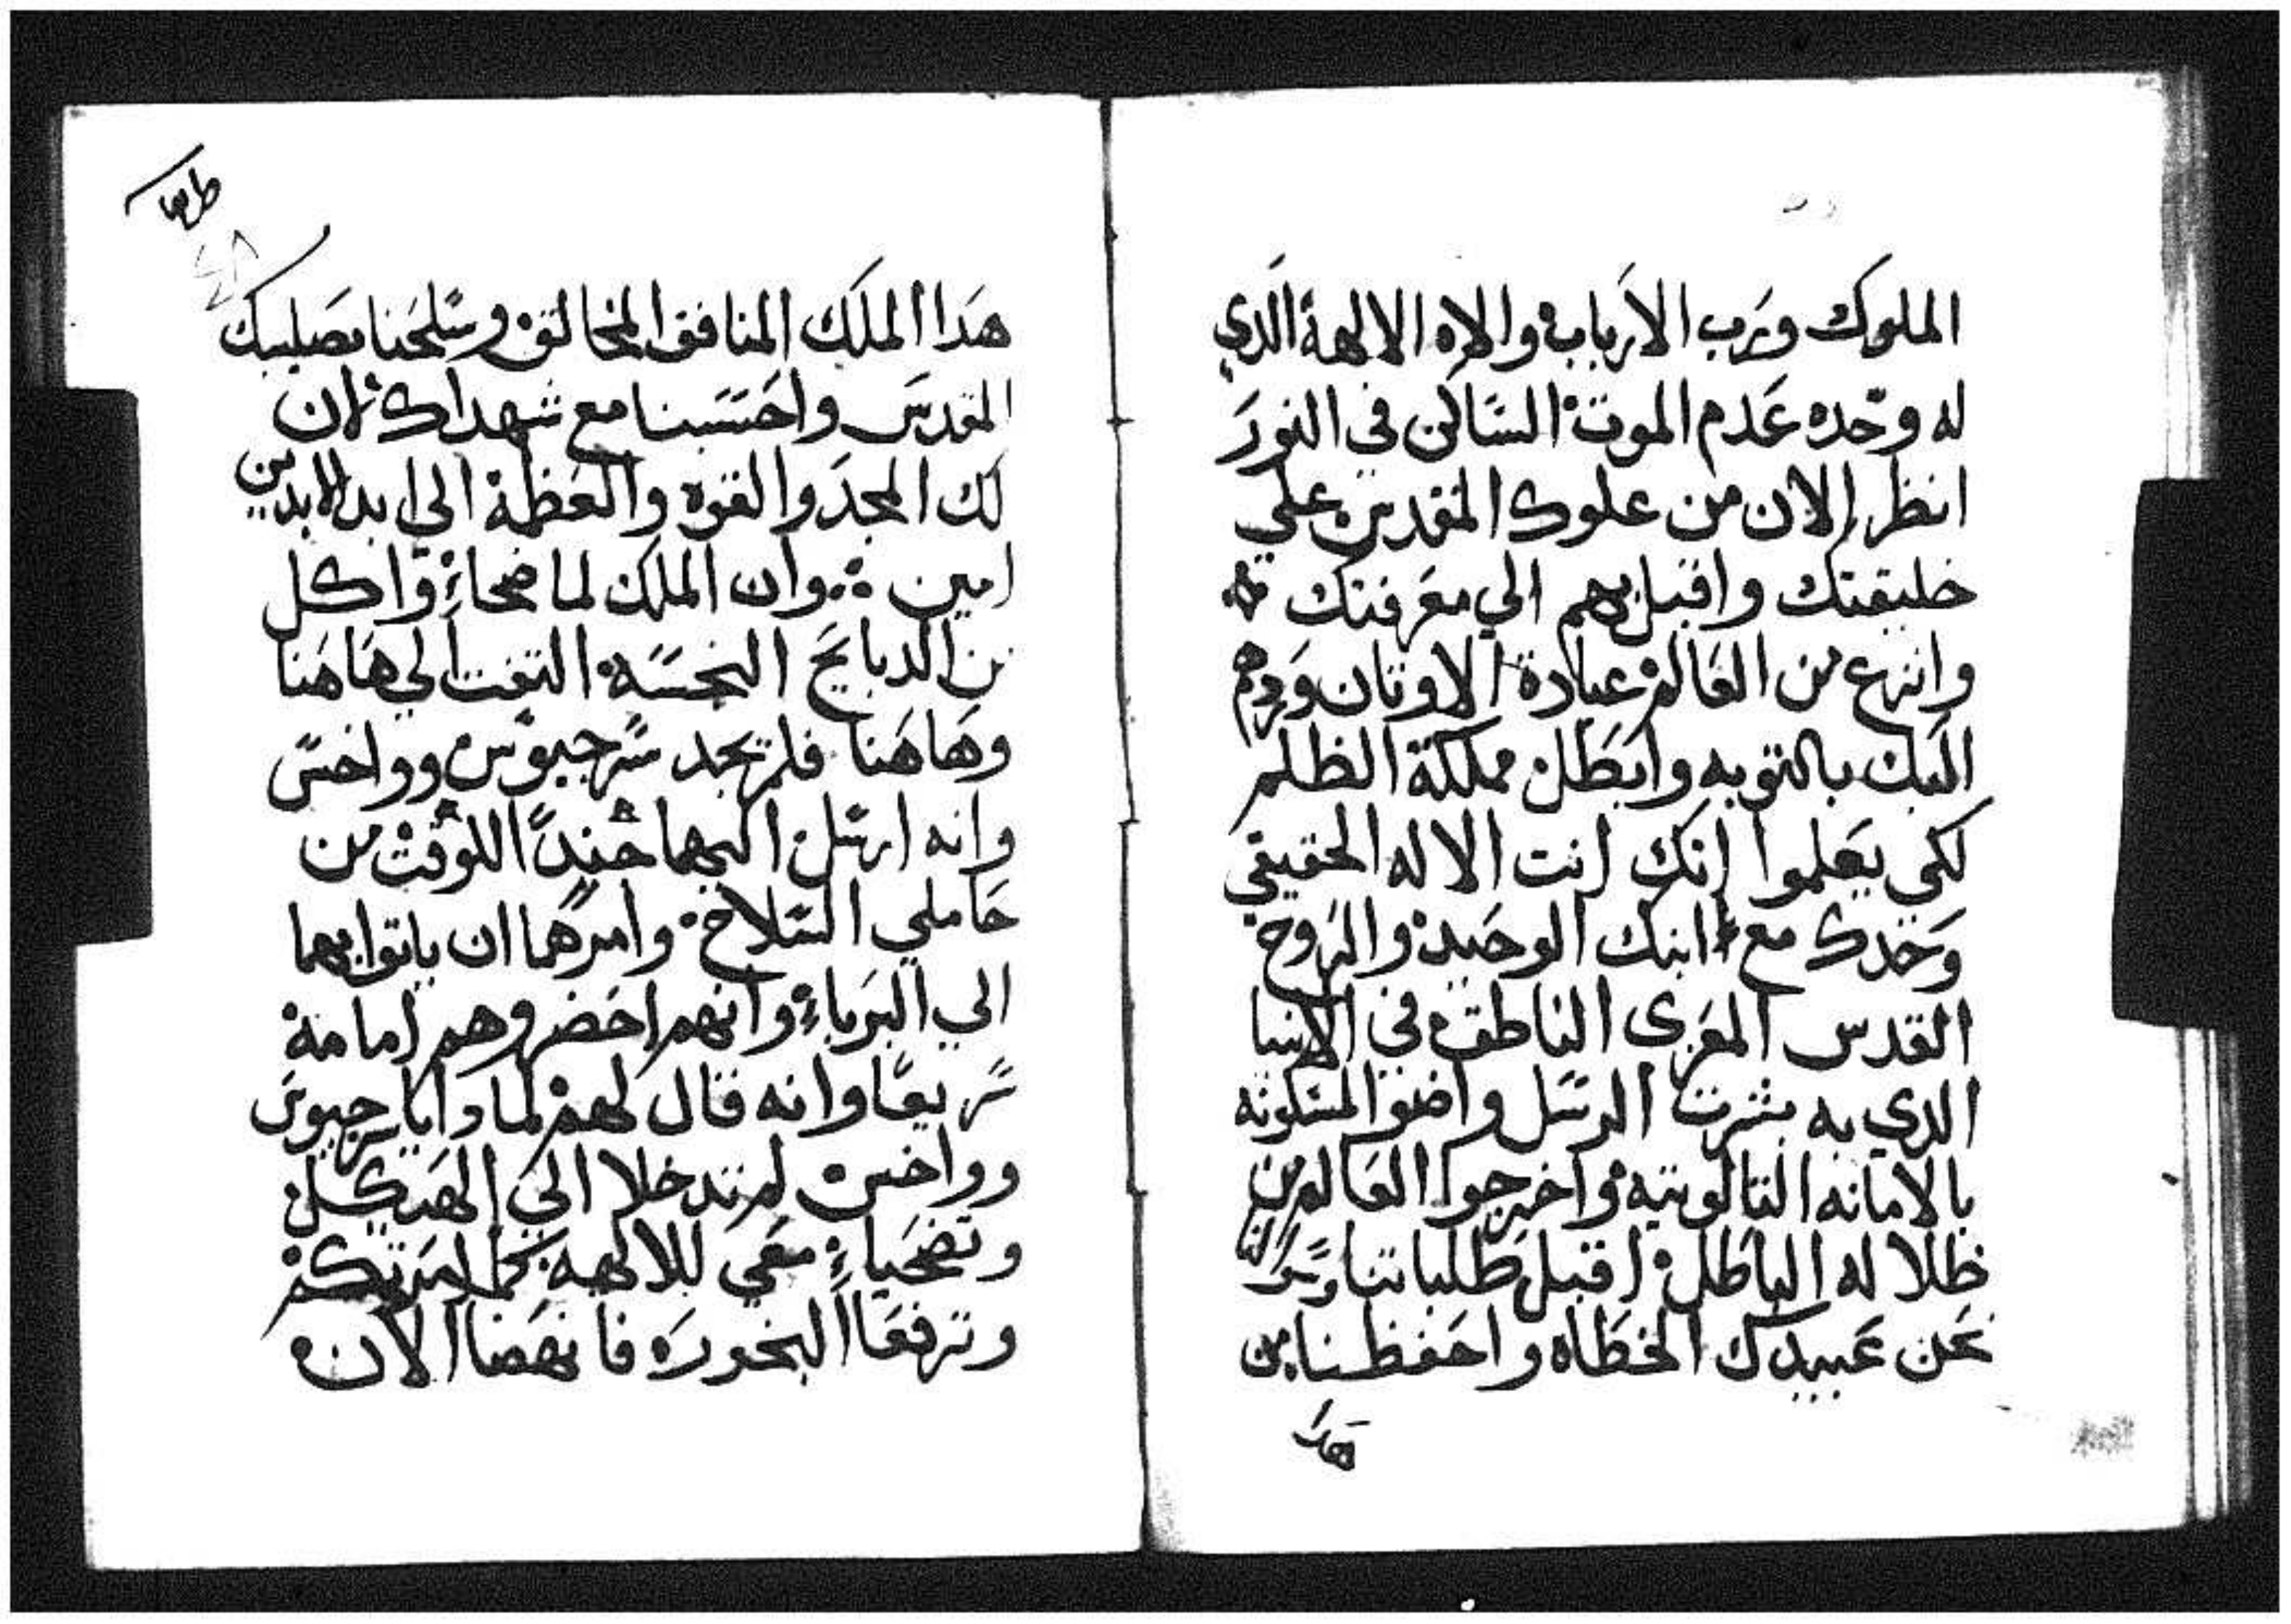 الملوك ورب الارباب والاه الالهة الدي
له وحده عدم الموت الساكن في النور
انظر الان من علوك المقدس علي
خليقتك واقبل بهم الي معرفتك
وانزع من العالم عبادة الاوتان وردهم
اليك بالتوبه وابطل مملكة الظلم
لكي يعلموا انك انت الاله الحقيقي
وحدك مع ابنك الوحيد والروح
القدس المعزى الناطق في الانبيا
الدي به بشرت الرسل واضوا المسكونه
بالامانه التالوتيه واخرجوا العالم من
ظلاله الباطل اقبل طلباتنا
عن عبيدك الخطاه واحفظنا من
هدا
هدا الملك المنافق المخالق وسلحنا بصليبك
المقدس واحسبنا مع شهداك لان
لك المجد والقوه والعظمة الي ابد الابدين
امين وان الملك لما ضحاء واكل
من الدبايح النجسه التفت الي هاهنا
وهاهنا فلم يجد سرجيوس وواخس
وانه ارسل اليهما جندًا للوقت من
حاملي السلاح وامرهما ان ياتوا بهما
الي البرباء وانهم احضروهم امامه
سريعًا وانه قال لهم لمادا يا سرجيوس
وواخس لم تدخلا الي الهيكل
وتضحياء معي للالهه كما امرتكم
وترفعا البخور فانهضا الان